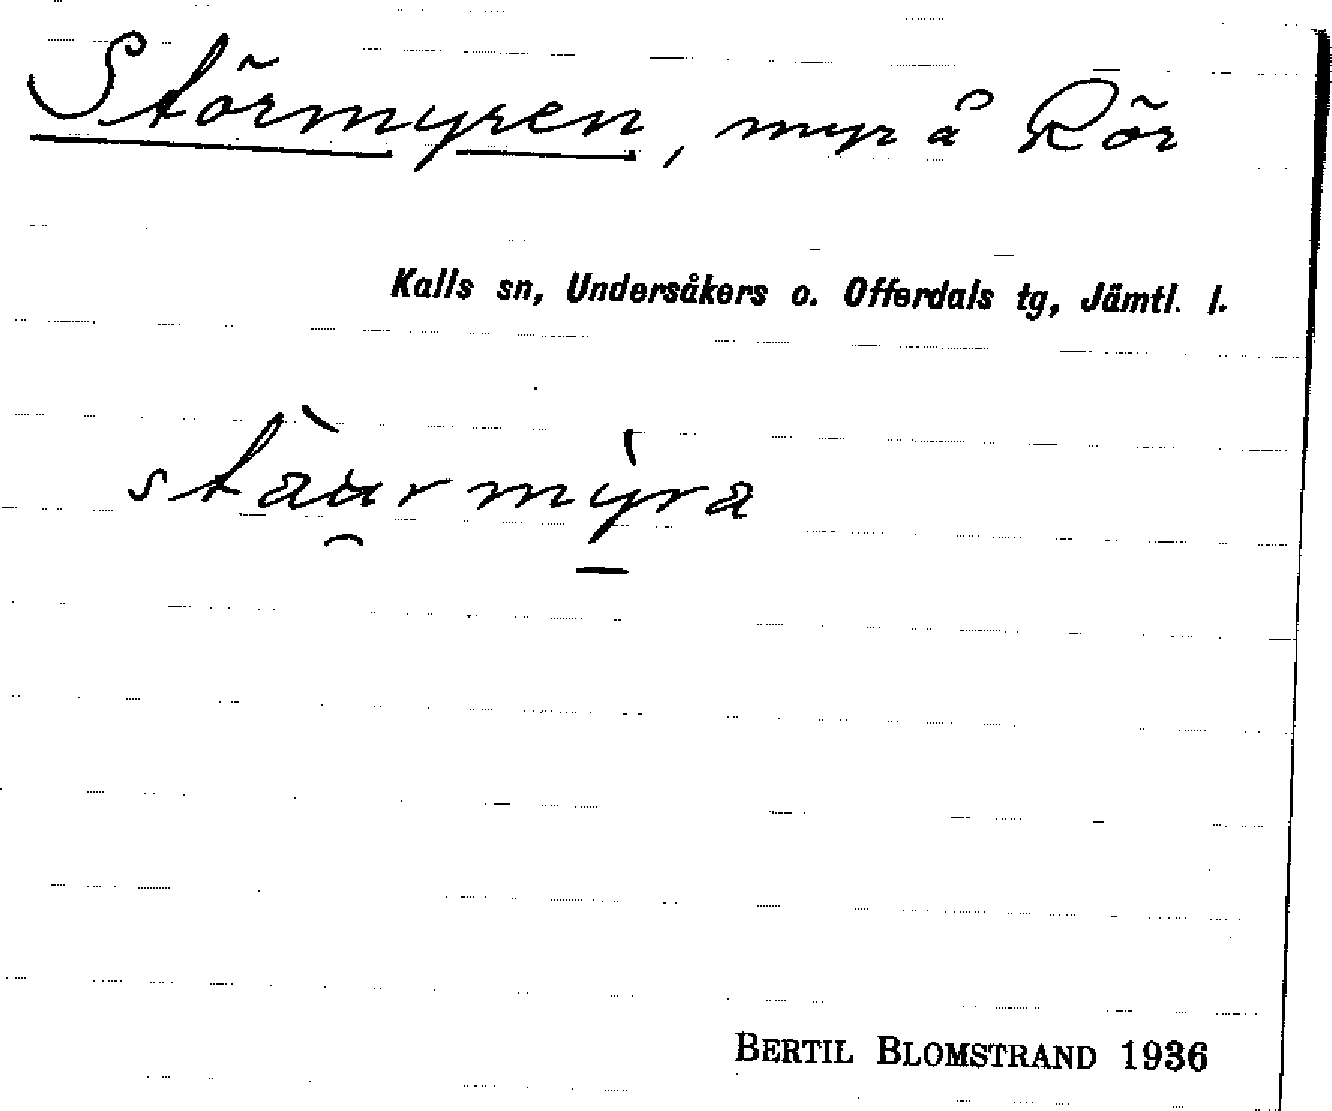 Störmyren, myr å Rör
Kalls sn, Undersåkers o. Offerdals tg, Jämtl. l.
stàu̯rmỳ̱ra
BERTIL BLOMSTRAND 1936